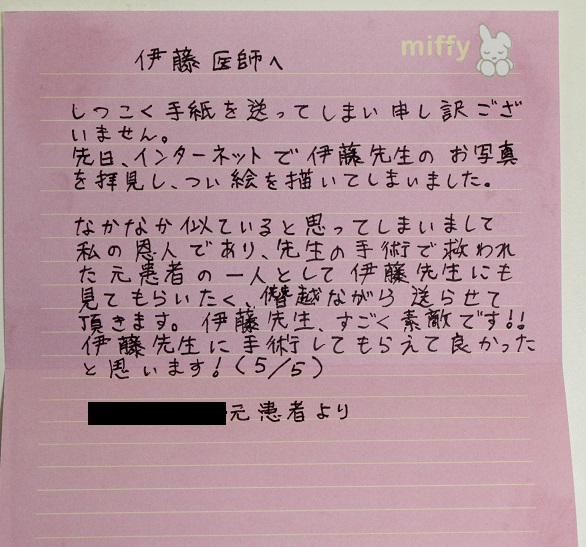 miffy
伊藤医師へ
しつこく手紙を送ってしまい申し訳ござ
いません。
先日、インターネットで伊藤先生のお写真
を拝見し、つい絵を描いてしまいました。
なかなか似ていると思ってしまいまして
私の恩人であり、先生の手術で救われ
た元患者の一人として伊藤先生にも
見てもらいたく、僭越ながら送らせて
頂きます。伊藤先生、すごく素敵です!!
伊藤先生に手術してもらえて良かった
と思います!(5/5)
元患者より